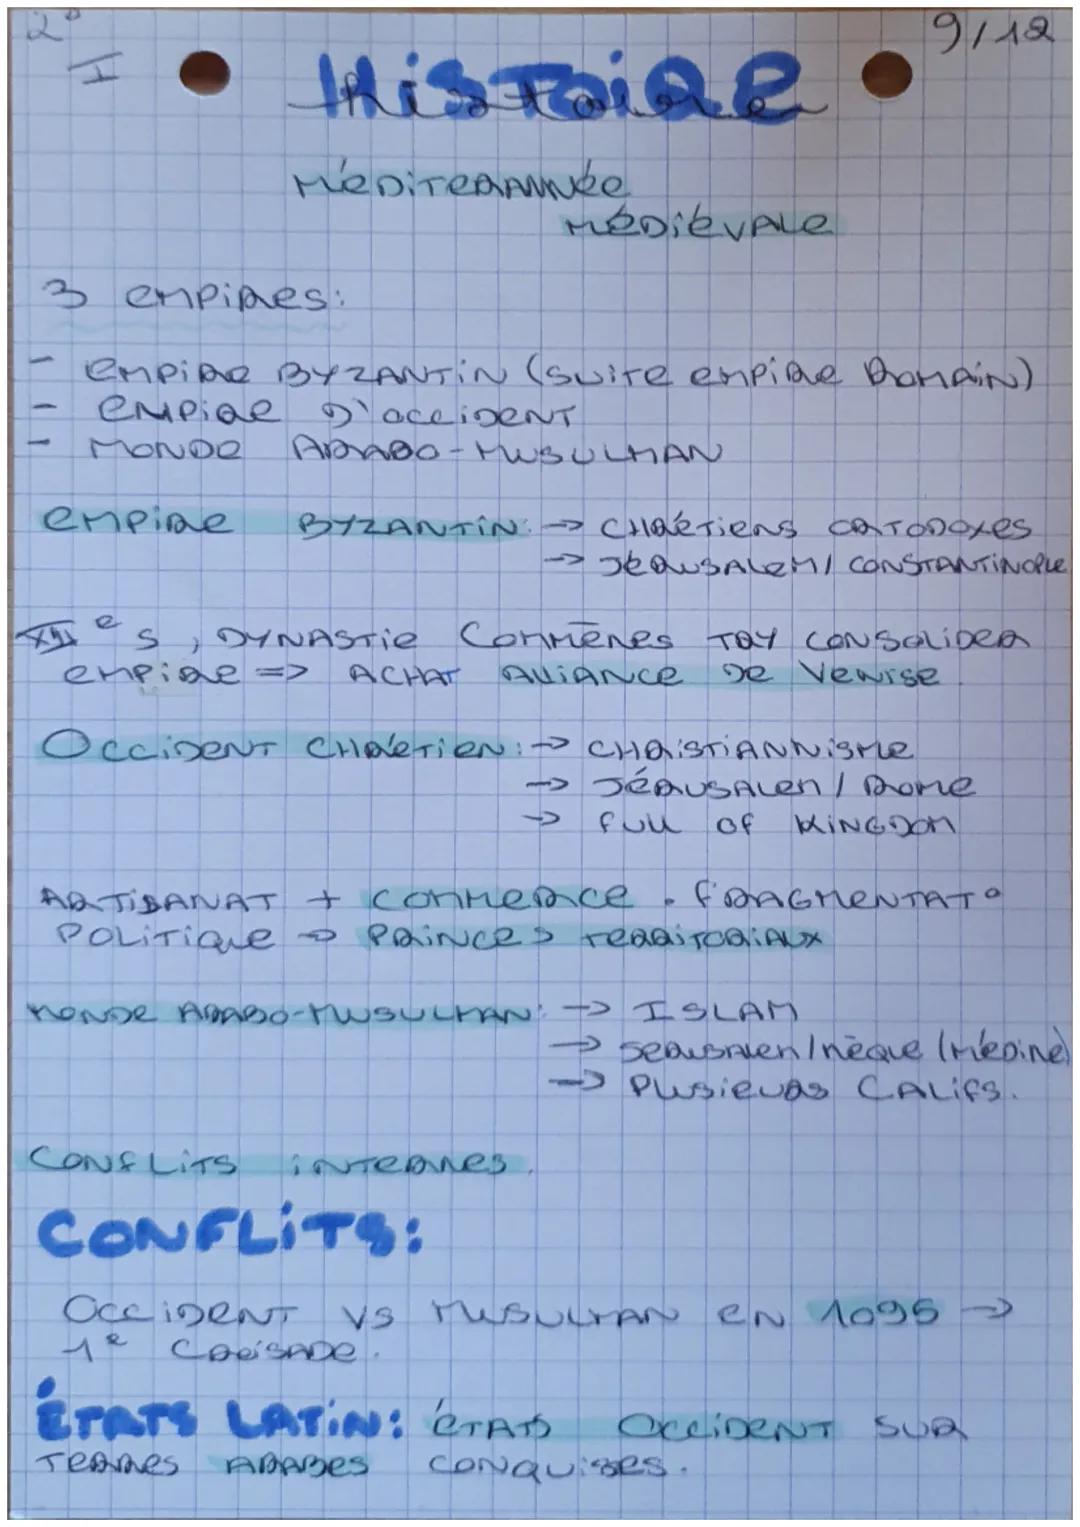 2°
I
9/12
Histoire
MéDiTeRANNée
MéDiéVALe
3 empires:
- empire BYZANTiN (suite empire Romain)
- empire D'occiDeNT
- MONDe ARABO-MUSULMAN
empire BYZANTiN: → CHRéTiENS ORTODOXes
→ JéRUSALeM / CONSTANTiNOPLe
XIIe s, DYNASTie Commènes TRY CONSOLiDeR
empire => ACHAT ALLiANCe De VeNise
OcciDeNT CHRéTieN: → CHRiSTiANNiSMe
→ JéRUSALem / Rome
→ full of KiNGDOM
ARTiSANAT + commerce. fRAGMeNTAT°
POLiTiQue → PRiNces TeRRiTORiAUX
MONDe ARABO-MUSULMAN: → ISLAM
→ JeRUSALem / Mèque (Médine)
→ PLUSieURS CALifs.
CONfLiTS iNTeRNes.
CONFLiTS:
OcciDeNT VS MUSULMAN eN 1095 →
1e CROiSADe.
ÉTATS LATiN: éTATS OcciDeNT SUR
TeRRes ARABes CONQUises.